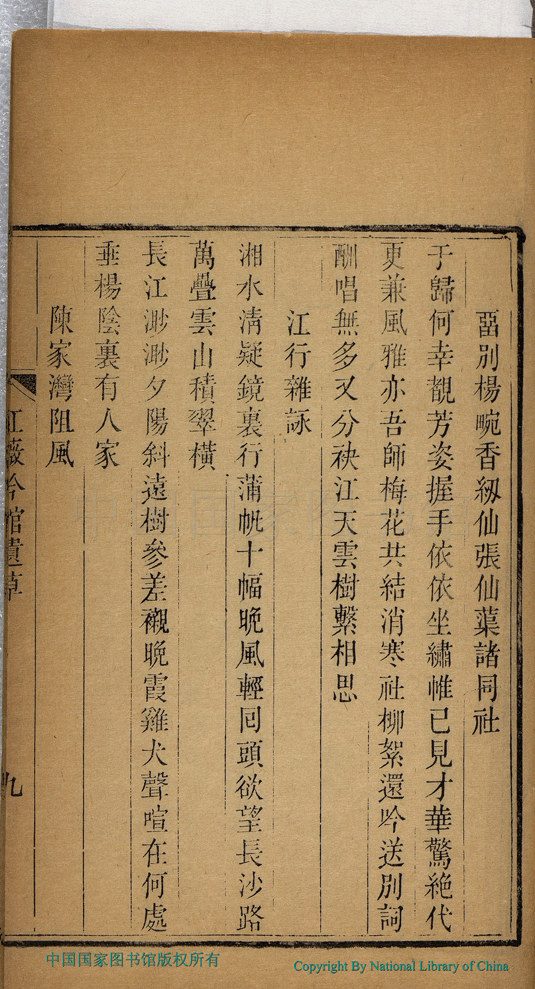 畱別楊畹香紉仙張仙蕖諸同社
于歸何幸覩芳姿握手依依坐繡帷已見才華驚絶代
更兼風雅亦吾師梅花共結消寒社柳絮還吟送別詞
酬唱無多又分袂江天雲樹繫相思
江行雜詠
湘水淸疑鏡裏行蒲帆十幅晩風輕囘頭欲望長沙路
萬疊雲山積翠橫
長江渺渺夕陽斜遠樹參差襯晩霞雞犬聲喧在何處
垂楊陰裏有人家
陳家灣阻風
紅薇吟館遺草
九
中国国家图书馆版权所有
Copyright By National Library of China